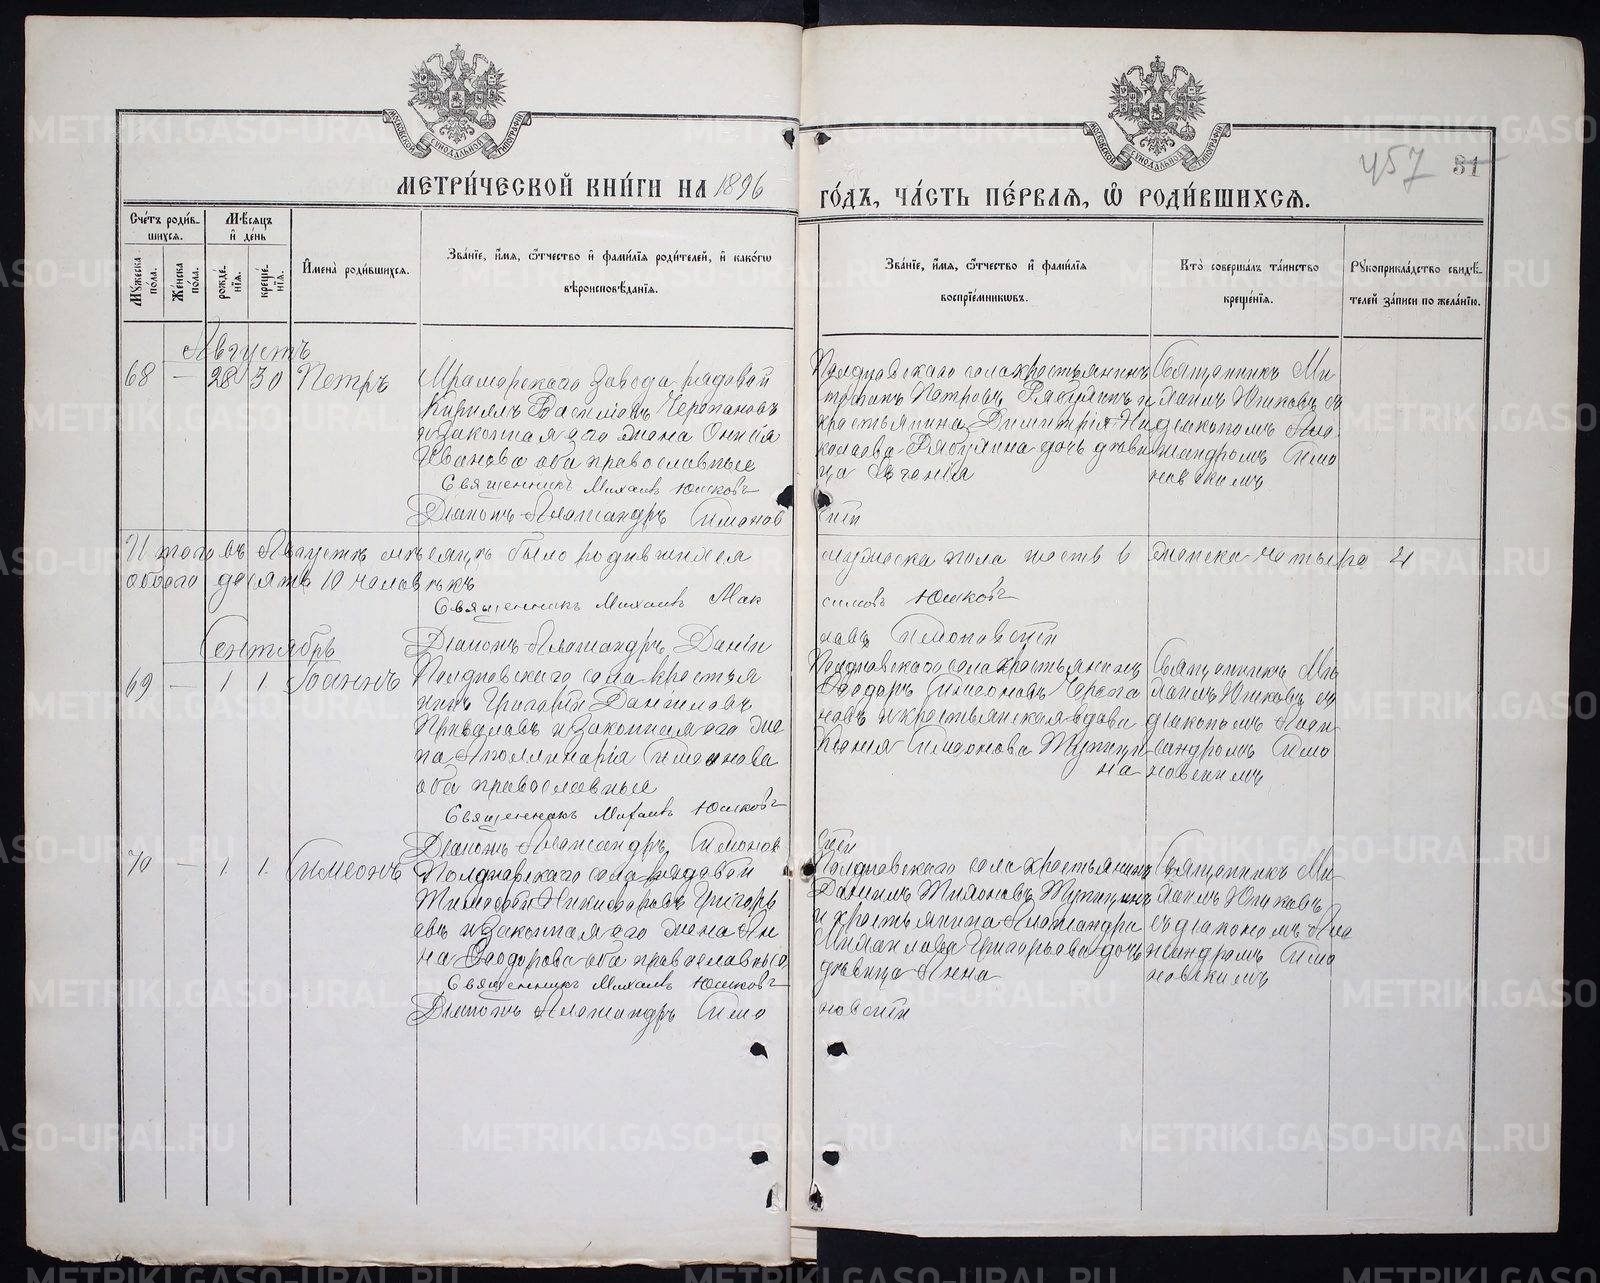 МЕТРИ́ЧЕСКОЙ КНИ́ГИ НА 1896
ГО́ДЪ, ЧА́СТЬ ПЕ́РВАЯ, Ѡ РОДИ́ВШИХСЯ.
457 51
Сче́тъ роди́в-
шихся.
Мѣ́сяцъ
и де́нь
Му́жеска
по́ла.
Же́нска
по́ла.
рожде́-
нія.
креще́-
нія.
Имена̀ роди́вшихся.
Зва́ніе, и́мя, ѻ́тчество и фами́лія роди́телей, и како́гѡ
вѣроисповѣ́данія.
Зва́ніе, и́мя, ѻ́тчество и фами́лія
воспріе́мникѡвъ.
Кто̀ соверша́лъ та́инство
креще́нія.
Рꙋкоприкла́дство свидѣ́-
телей за́писи по жела́нію.
Августъ
68 — 28 30 Петръ
Мраморскаго завода рядовой
Кириллъ Василіевъ Черепановъ
и законная его жена Онисія
Иванова оба православные
Священникъ Михаилъ Юшковъ
Діаконъ Александръ Симонов
скій
Полдневскаго села крестьянинъ
Митрофанъ Петровъ Рябухинъ и
крестьянина Димитрія Ни
колаева Рябухина дочь дѣви
ца Евгенія
Священникъ Ми
хаилъ Юшковъ съ
діакономъ Але
ксандромъ Симо
новскимъ
Итого въ Августѣ мѣсяцѣ было родившихся
мужеска пола шесть 6 женска четыре 4
обоего десять 10 человѣкъ
Священникъ Михаилъ Мак
симовъ Юшковъ
Діаконъ Александръ Даніи
ловъ Симоновскій
Сентябрь
69 — 1 1 Іоаннъ
Полдневскаго села крестья
нинъ Григорій Даніиловъ
и законная его же
на Аполлинарія Симеонова
оба православные
Священникъ Михаилъ Юшковъ
Діаконъ Александръ Симонов
скій
Полдневскаго села крестьянинъ
Ѳеодоръ Симеоновъ Черепа
новъ и крестьянская вдова
Ксенія Симеонова
на
Священникъ Ми
хаилъ Юшковъ съ
діакономъ Алек
сандромъ Симо
новскимъ
70 — 1 1 Симеонъ
Полдневскаго села рядовой
Тимоѳей Никифоровъ Григорь
евъ и законная его жена Ан
на Ѳеодорова оба православные
Священникъ Михаилъ Юшковъ
Діаконъ Александръ Симо
новскій
Полдневскаго села крестьянинъ
Даніилъ Тихоновъ
и крестьянина Александра
Михаилова Григорьева дочь
дѣвица Анна
Священникъ Ми
хаилъ Юшковъ
съ діакономъ Але
ксандромъ Симо
новскимъ
METRIKI.GASO-URAL.RU